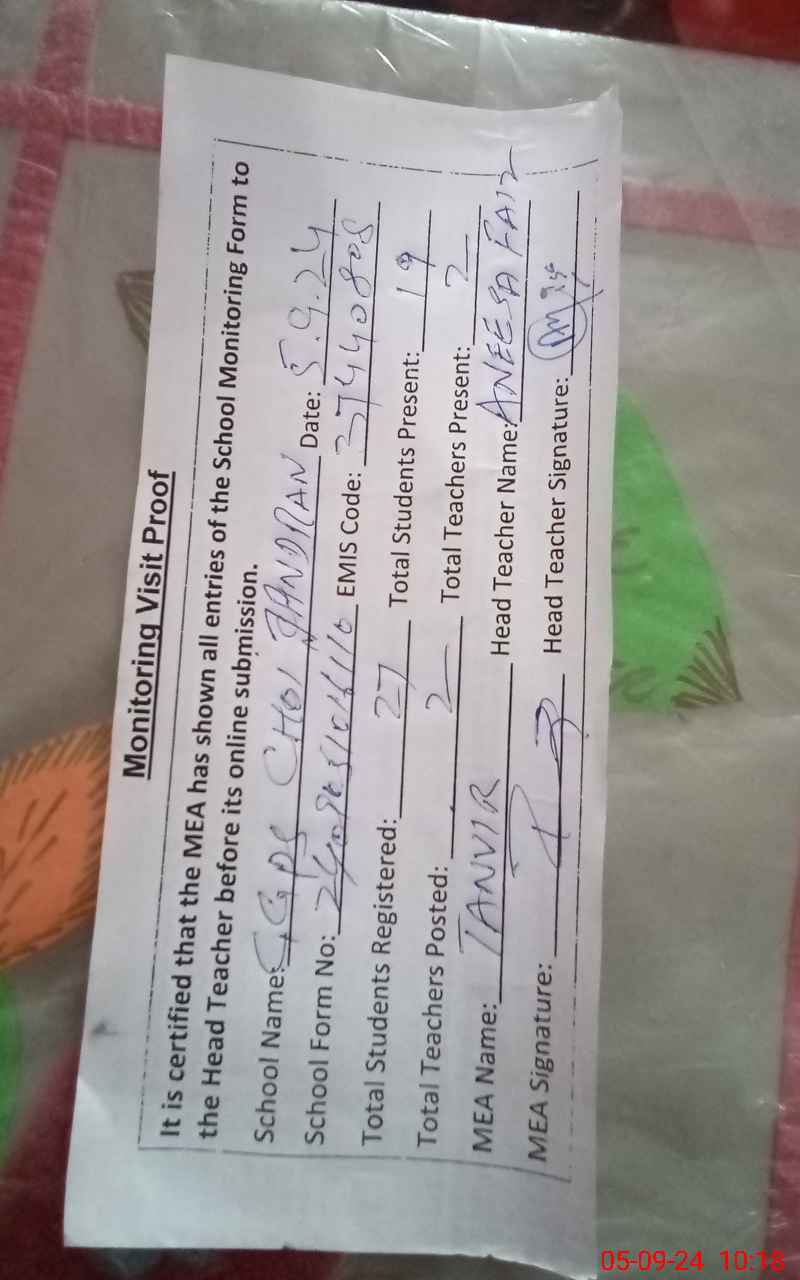 Monitoring Visit Proof
It is certified that the MEA has shown all entries of the School Monitoring Form to
the Head Teacher before its online submission.
School Name: GGPS CHOI JANDRAN Date: 5.9.24
School Form No: EMIS Code: 37440808
Total Students Registered: 27 Total Students Present: 19
Total Teachers Posted: 2 Total Teachers Present: 2
MEA Name: TANVIR Head Teacher Name: ANEESA FAIZ
MEA Signature: Head Teacher Signature:
05-09-24 10:18